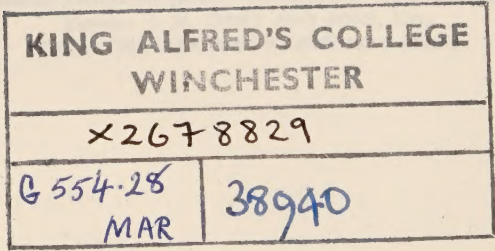 KING ALFRED'S COLLEGE
WINCHESTER
×2678829
G 554.28 38940
MAR